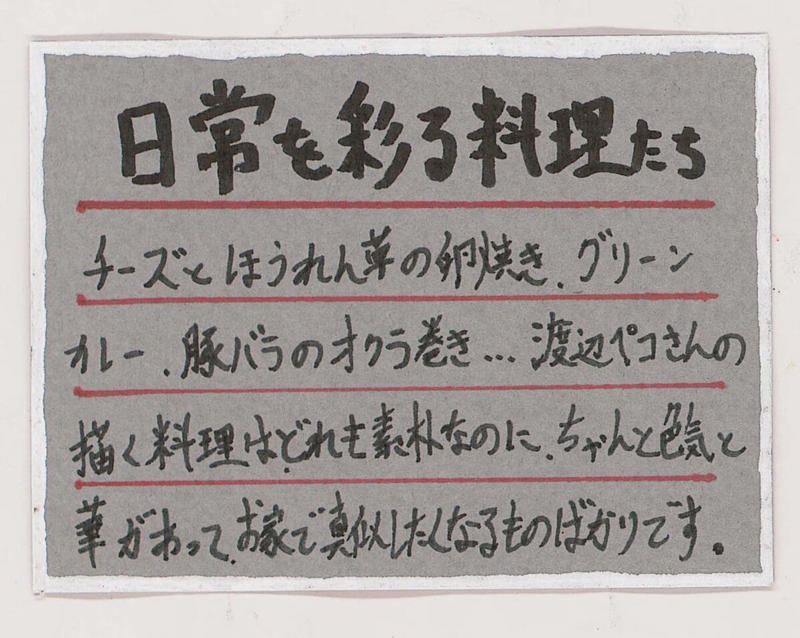 日常を彩る料理たち
チーズとほうれん草の卵焼き、グリーン
カレー、豚バラのオクラ巻き…渡辺ペコさんの
描く料理はどれも素朴なのに、ちゃんと色気と
華があって、お家で真似したくなるものばかりです。